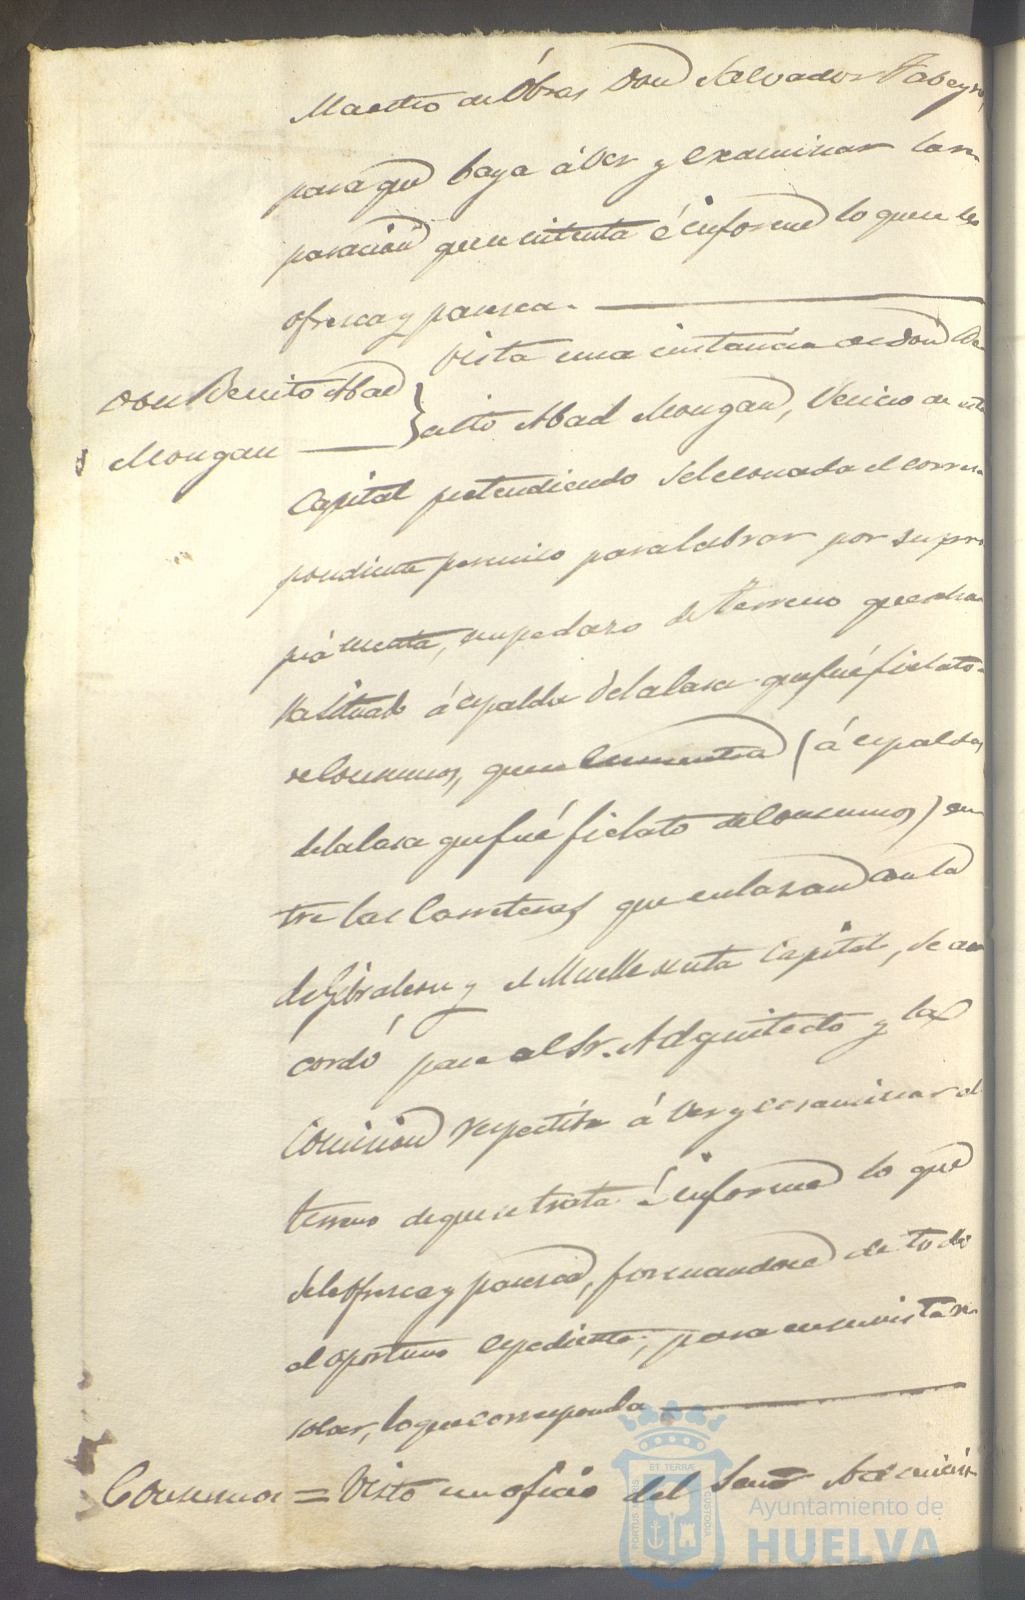 Maestro de Obras Don Salvador Tabeyro,
para que baya á ver y examinar la re
paracion que se intenta é informe lo que se le
ofresca y paresca.
Vista una instancia de Don Be
Don Benito Abad
Mongan
nito Abad Mongan, Vecino de esta
Capital pretendiendo se le conceda el corres
pondiente permiso para labrar por su pro
pia cuenta, un pedaso de terreno que se ha
lla situado á espalda de la casa que fué fielato
de Consumos, que se encuentra (á espaldas
de la casa que fué fielato de Consumos) en
tre las Carreteras que enlasan con la
de Gibraleon y el Muelle de esta Capital, se a
cordó pase al Sr. Adquitecto y la
Comision respectiva á ver y examinar el
terreno de que se trata é informe lo que
se le ofresca y paresca, formandose de todo
el oportuno espediente, para en su vista re
solver, lo que corresponda
Consumos = Visto un oficio del Señor Admini
PORTUS MARIS
ET TERRÆ
CUSTODIA
Ayuntamiento de
HUELVA